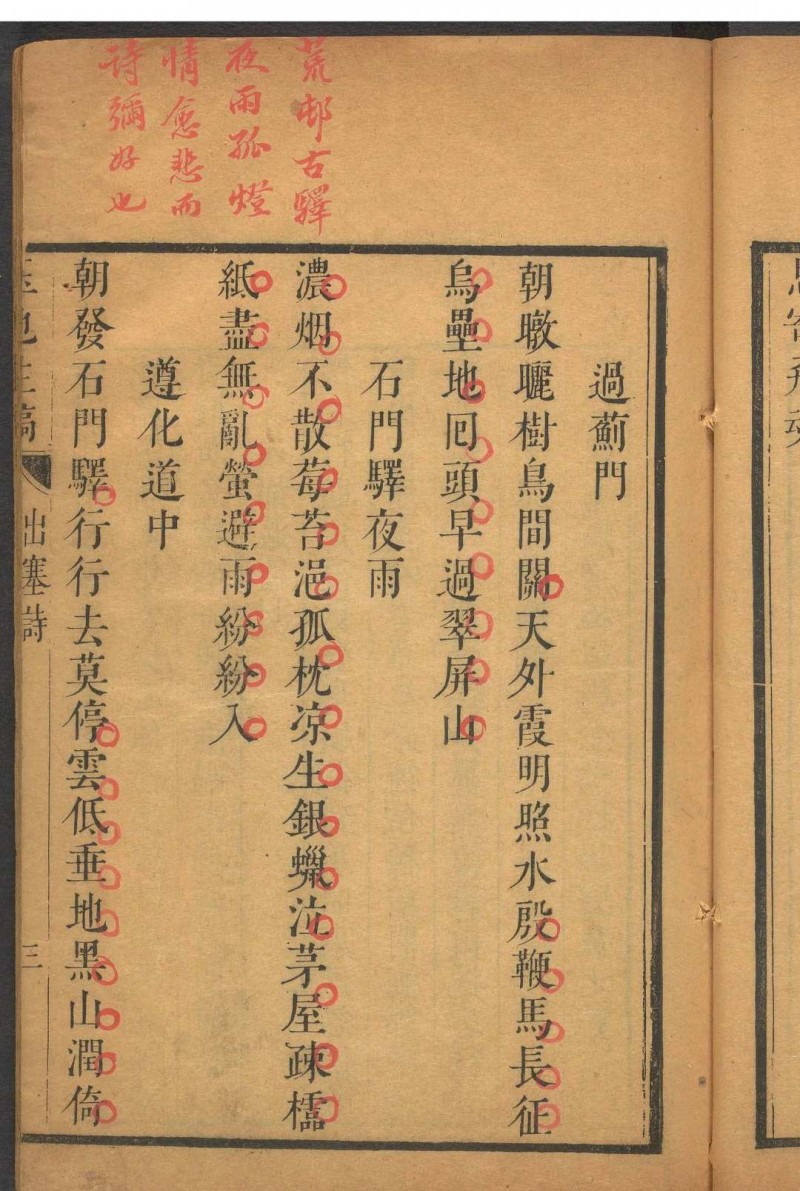 荒邨古驛
夜雨孤燈
情愈悲而
詩彌好也
過薊門
朝暾曬樹鳥間關天外霞明照水殷鞭馬長征
烏壘地囘頭早過翠屏山
石門驛夜雨
濃烟不散莓苔浥孤枕凉生銀蠟泣茅屋疎櫺
紙盡無亂螢避雨紛紛入
遵化道中
朝發石門驛行行去莫停雲低垂地黑山潤倚
出塞詩
三